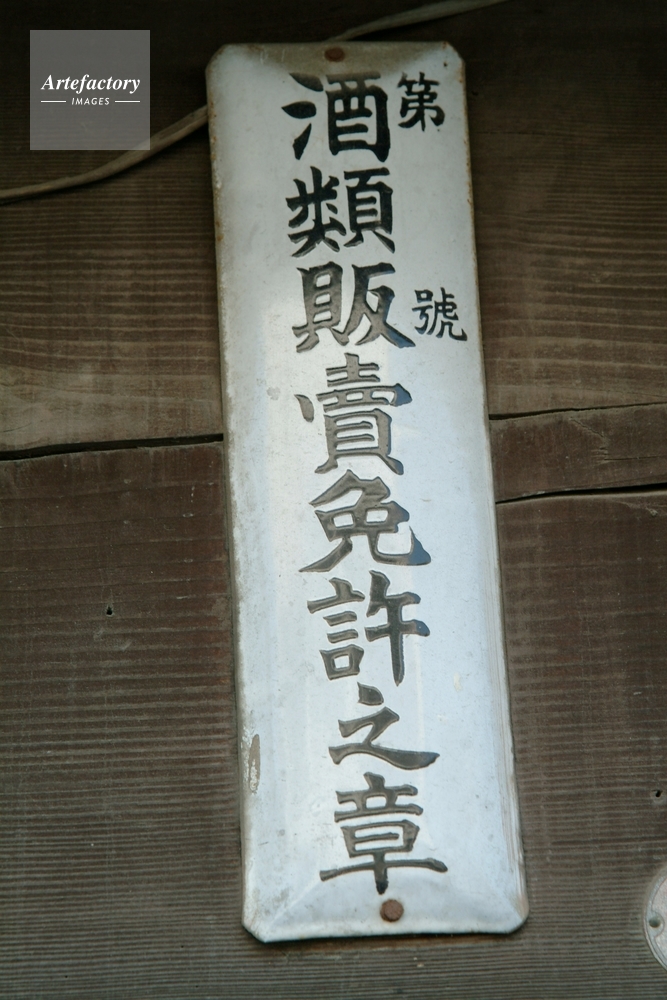 Artefactory
IMAGES
第 號
酒類販賣免許之章